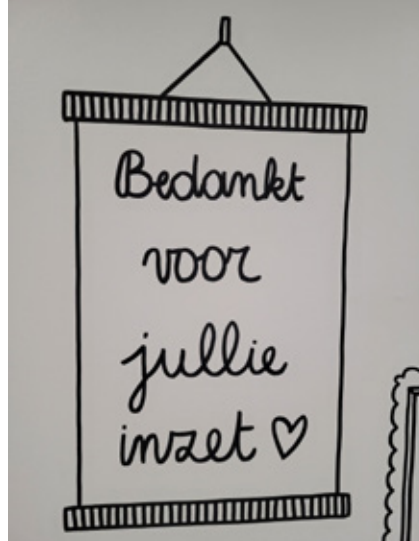 Bedankt
voor
jullie
inzet ♡